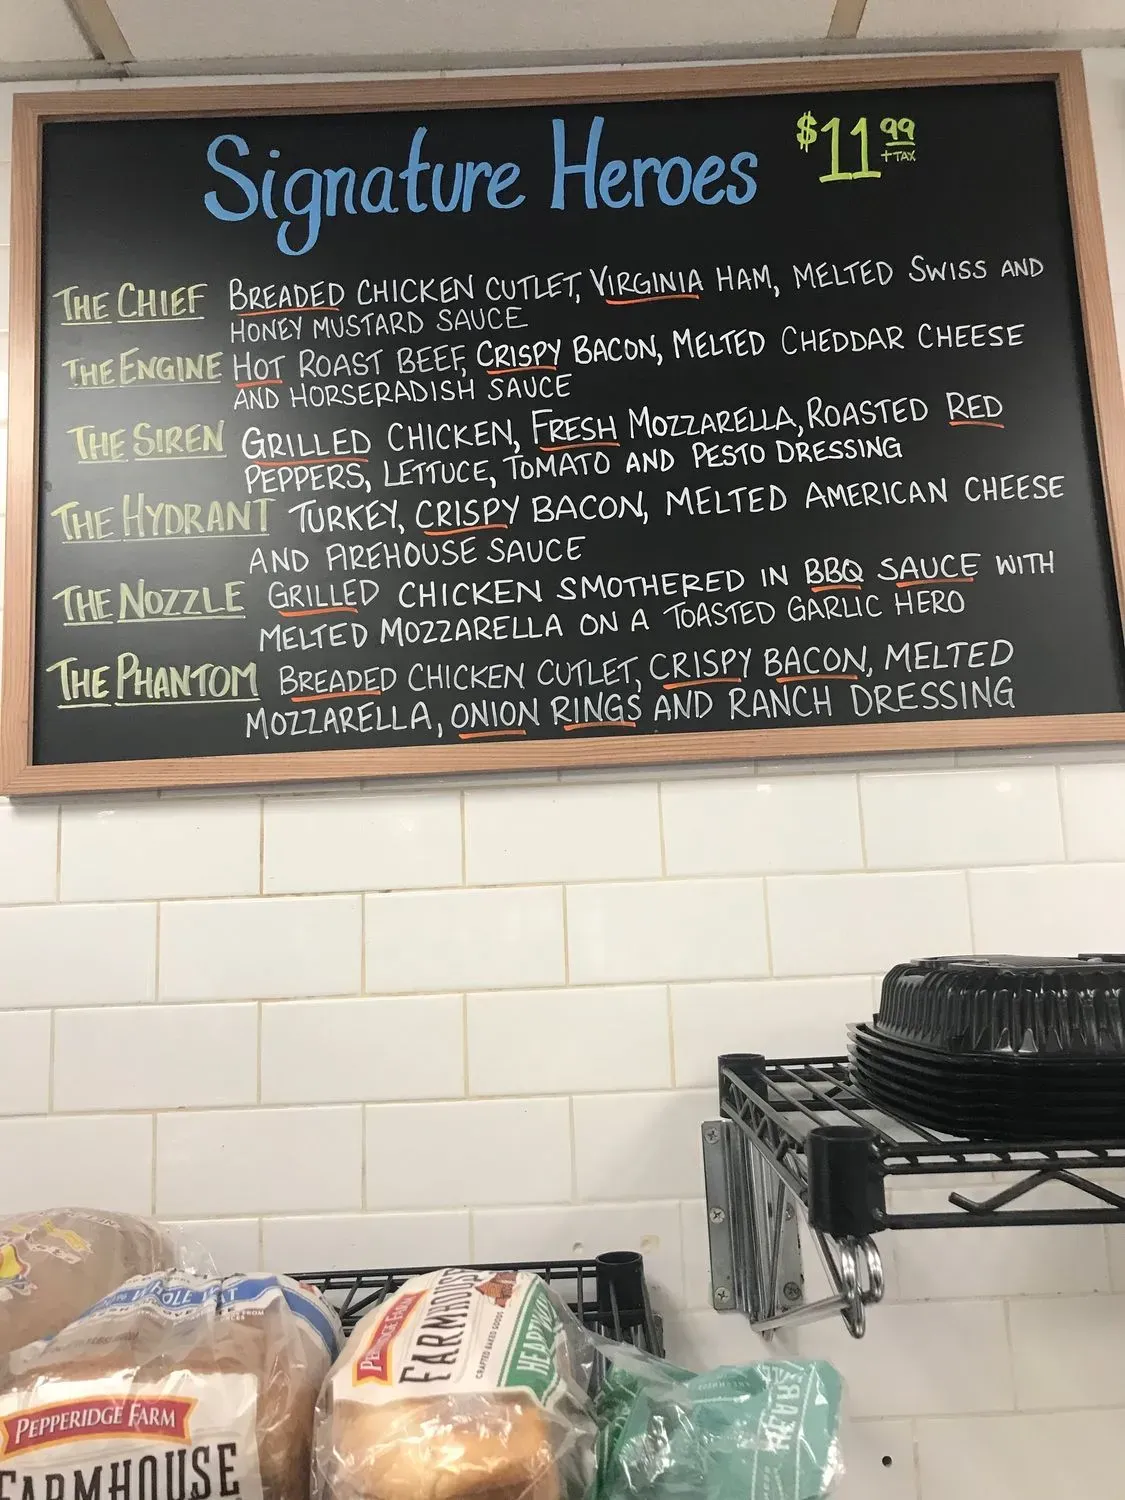 Signature Heroes $11 99 +TAX
THE CHIEF BREADED CHICKEN CUTLET, VIRGINIA HAM, MELTED SWISS AND
HONEY MUSTARD SAUCE
THE ENGINE HOT ROAST BEEF, CRISPY BACON, MELTED CHEDDAR CHEESE
AND HORSERADISH SAUCE
THE SIREN GRILLED CHICKEN, FRESH MOZZARELLA, ROASTED RED
PEPPERS, LETTUCE, TOMATO AND PESTO DRESSING
THE HYDRANT TURKEY, CRISPY BACON, MELTED AMERICAN CHEESE
AND FIREHOUSE SAUCE
THE NOZZLE GRILLED CHICKEN SMOTHERED IN BBQ SAUCE WITH
MELTED MOZZARELLA ON A TOASTED GARLIC HERO
THE PHANTOM BREADED CHICKEN CUTLET, CRISPY BACON, MELTED
MOZZARELLA, ONION RINGS AND RANCH DRESSING
PEPPERIDGE FARM
FARMHOUSE
PEPPERIDGE FARM
FARMHOUSE
CRAFTED BAKED GOODS